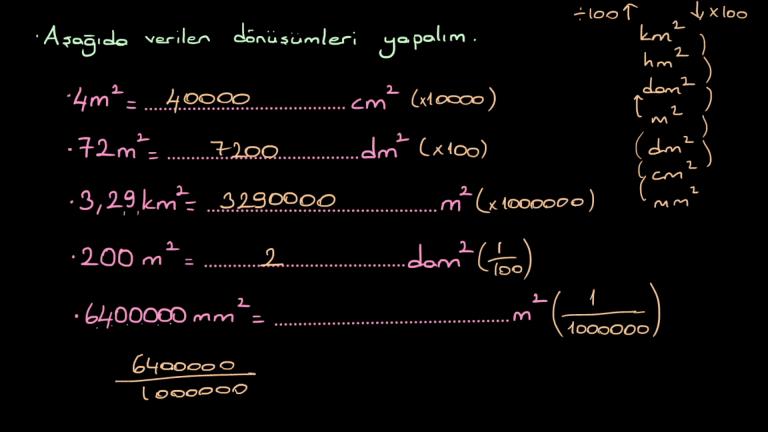 ÷100 ↑ ↓ x100
· Aşağıda verilen dönüşümleri yapalım.
km²
hm²
dam²
m²
dm²
cm²
mm²
· 4m² = ....40000.... cm² (x10000)
· 72m² = ....7200.... dm² (x100)
· 3,29 km² = ....3290000.... m² (x1000000)
· 200 m² = ....2.... dam² (1/100)
· 6400000 mm² = ........ m² (1/1000000)
6400000
1000000